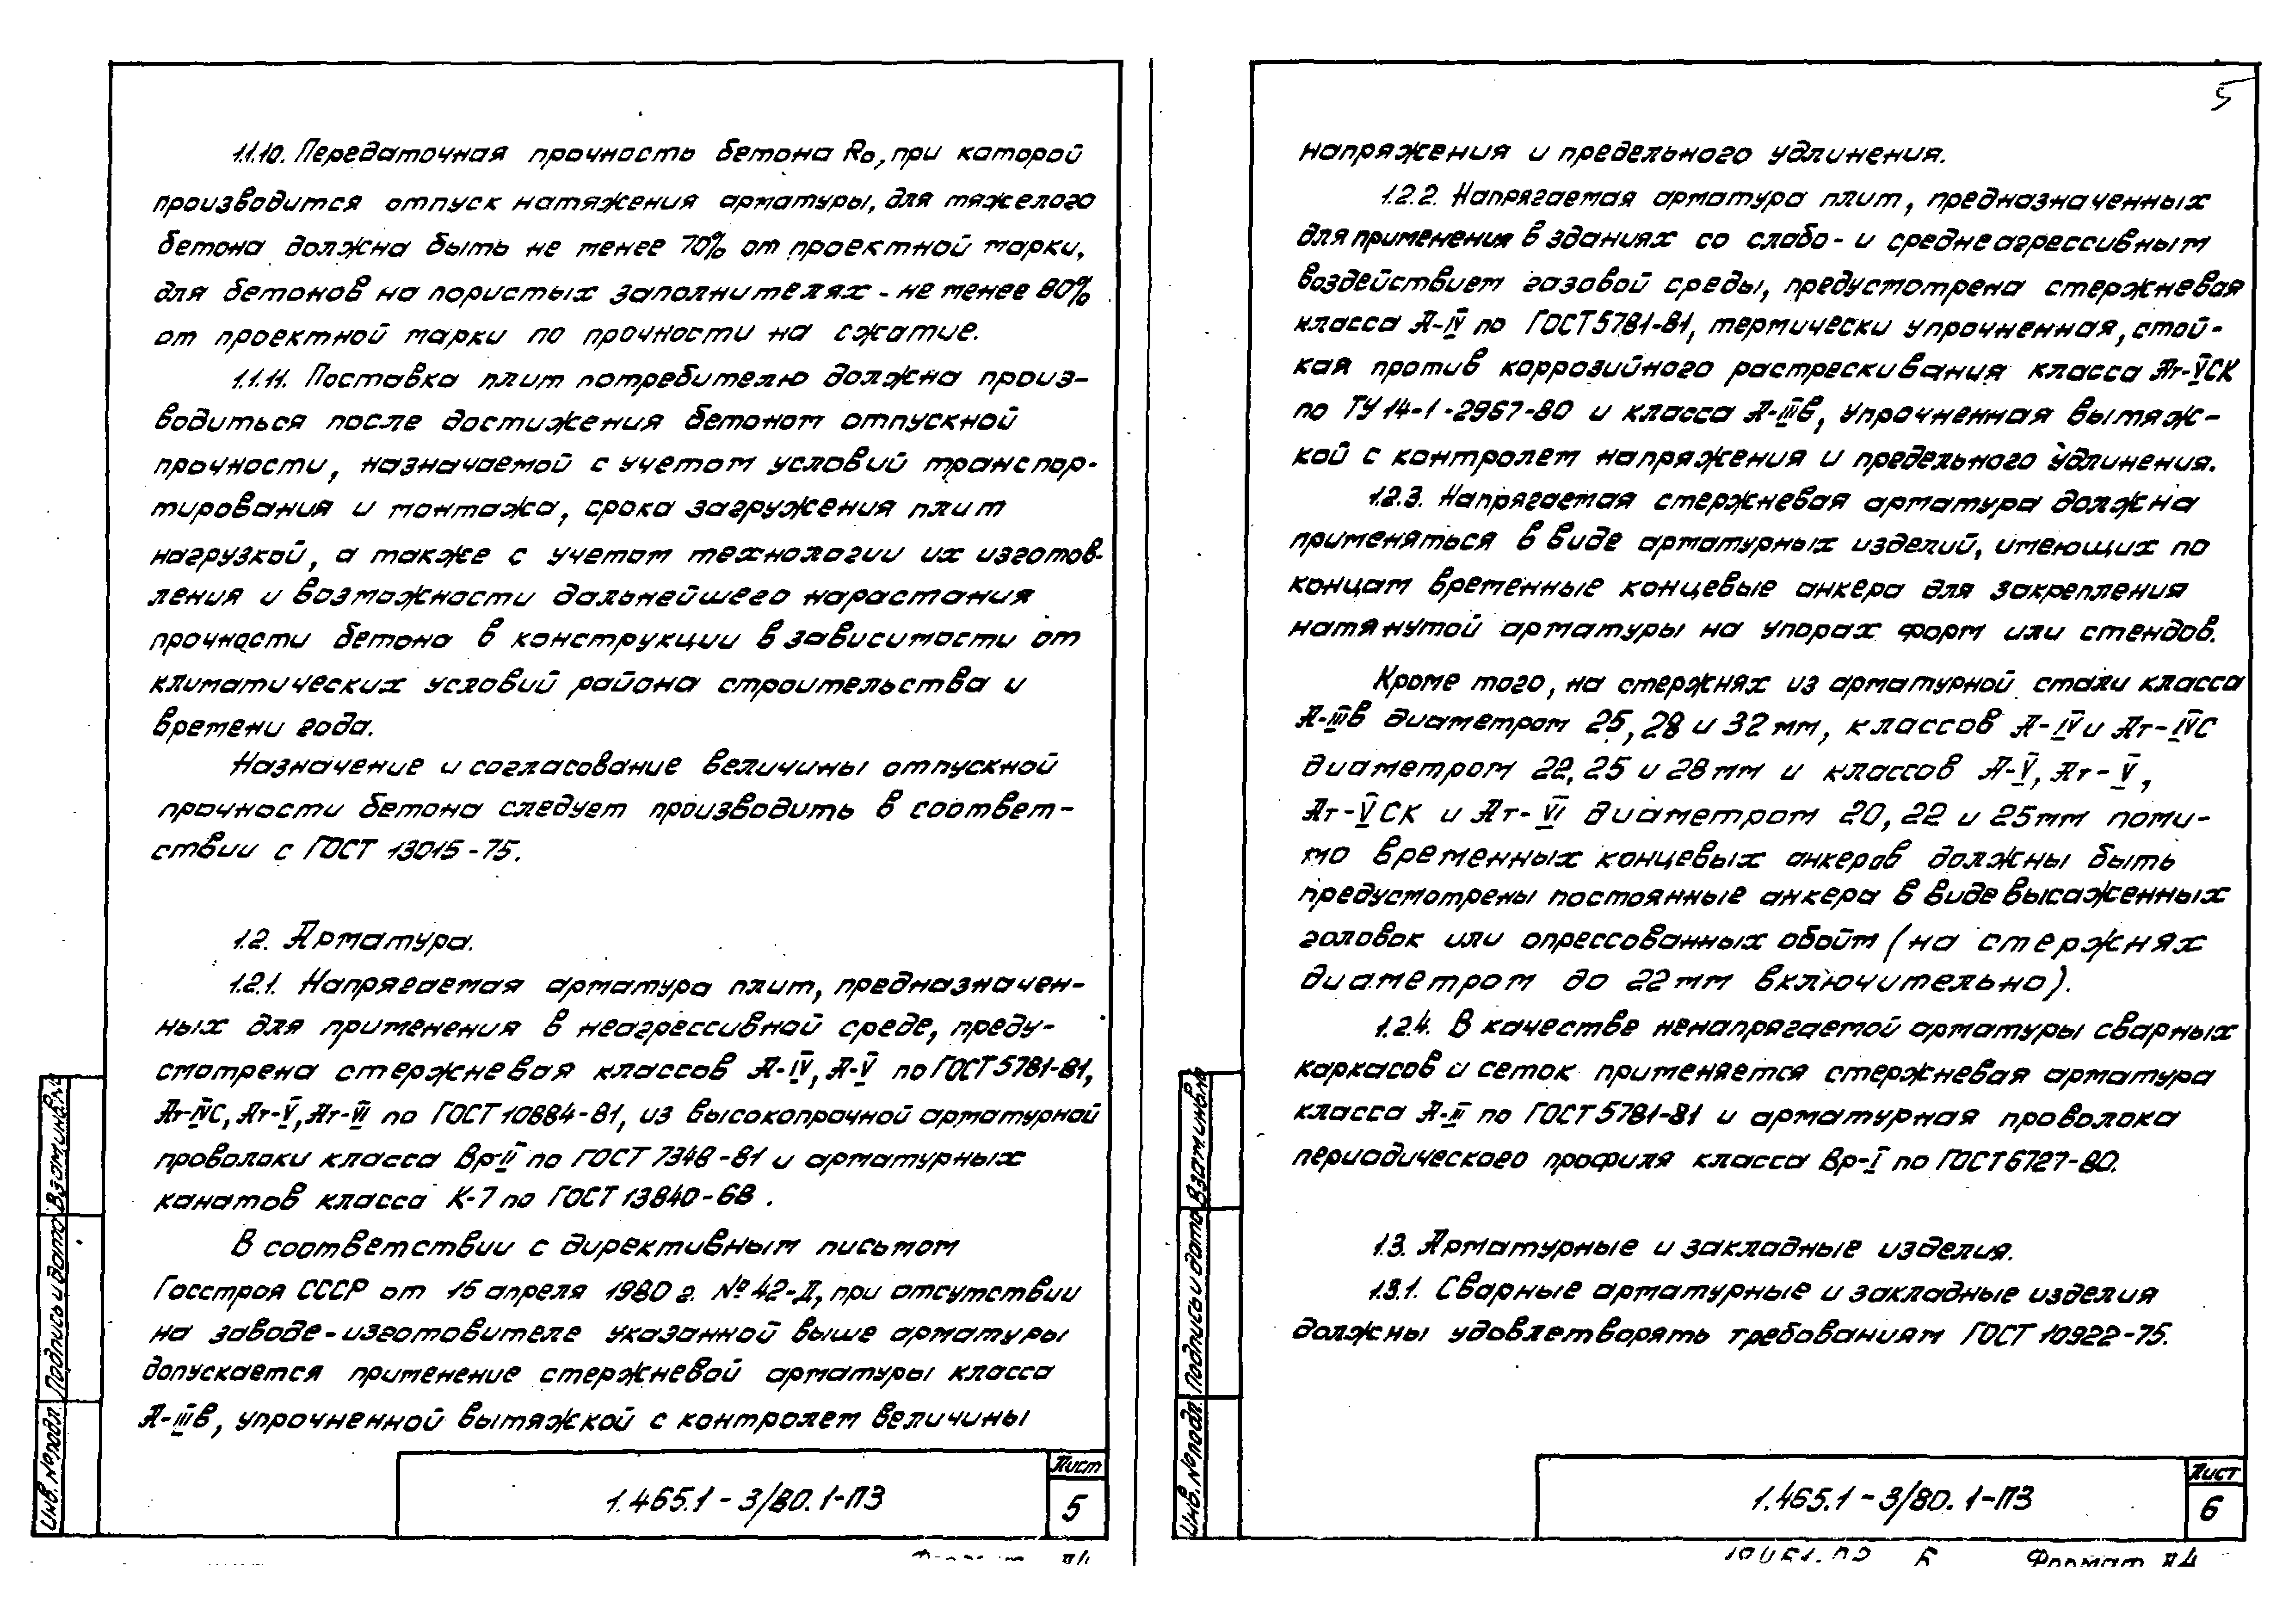 1.1.10. Передаточная прочность бетона Rо, при которой
производится отпуск натяжения арматуры, для тяжелого
бетона должна быть не менее 70% от проектной марки,
для бетонов на пористых заполнителях - не менее 80%
от проектной марки по прочности на сжатие.
1.1.11. Поставка плит потребителю должна произ-
водиться после достижения бетоном отпускной
прочности, назначаемой с учетом условий транспор-
тирования и монтажа, срока загружения плит
нагрузкой, а также с учетом технологии их изготов-
ления и возможности дальнейшего нарастания
прочности бетона в конструкции в зависимости от
климатических условий района строительства и
времени года.
Назначение и согласование величины отпускной
прочности бетона следует производить в соответ-
ствии с ГОСТ 13015-75.
1.2. Арматура.
1.2.1. Напрягаемая арматура плит, предназначен-
ных для применения в неагрессивной среде, преду-
смотрена стержневая классов А-IV, А-V по ГОСТ 5781-81,
Ат-IVС, Ат-V, Ат-VI по ГОСТ 10884-81, из высокопрочной арматурной
проволоки класса Вр-II по ГОСТ 7348-81 и арматурных
канатов класса К-7 по ГОСТ 13840-68.
В соответствии с директивным письмом
Госстроя СССР от 15 апреля 1980 г. № 42-Д, при отсутствии
на заводе-изготовителе указанной выше арматуры
допускается применение стержневой арматуры класса
А-IIIв, упрочненной вытяжкой с контролем величины
1.465.1-3/80.1-ПЗ
Лист
5
Инв. № подл. Подпись и дата Взам.инв.№
5
напряжения и предельного удлинения.
1.2.2. Напрягаемая арматура плит, предназначенных
для применения в зданиях со слабо- и среднеагрессивным
воздействием газовой среды, предусмотрена стержневая
класса А-IV по ГОСТ 5781-81, термически упрочненная, стой-
кая против коррозийного растрескивания класса Ат-VСК
по ТУ 14-1-2967-80 и класса А-IIIв, упрочненная вытяж-
кой с контролем напряжения и предельного удлинения.
1.2.3. Напрягаемая стержневая арматура должна
применяться в виде арматурных изделий, имеющих по
концам временные концевые анкера для закрепления
натянутой арматуры на упорах форм или стендов.
Кроме того, на стержнях из арматурной стали класса
А-IIIв диаметром 25, 28 и 32 мм, классов А-IV и Ат-IVС
диаметром 22, 25 и 28 мм и классов А-V, Ат-V,
Ат-VСК и Ат-VI диаметром 20, 22 и 25 мм поми-
мо временных концевых анкеров должны быть
предусмотрены постоянные анкера в виде высаженных
головок или опрессованных обойм (на стержнях
диаметром до 22 мм включительно).
1.2.4. В качестве ненапрягаемой арматуры сварных
каркасов и сеток применяется стержневая арматура
класса А-III по ГОСТ 5781-81 и арматурная проволока
периодического профиля класса Вр-I по ГОСТ 6727-80.
1.3. Арматурные и закладные изделия.
1.3.1. Сварные арматурные и закладные изделия
должны удовлетворять требованиям ГОСТ 10922-75.
1.465.1-3/80.1-ПЗ
Лист
6
Инв. № подл. Подпись и дата Взам.инв.№
Формат А4